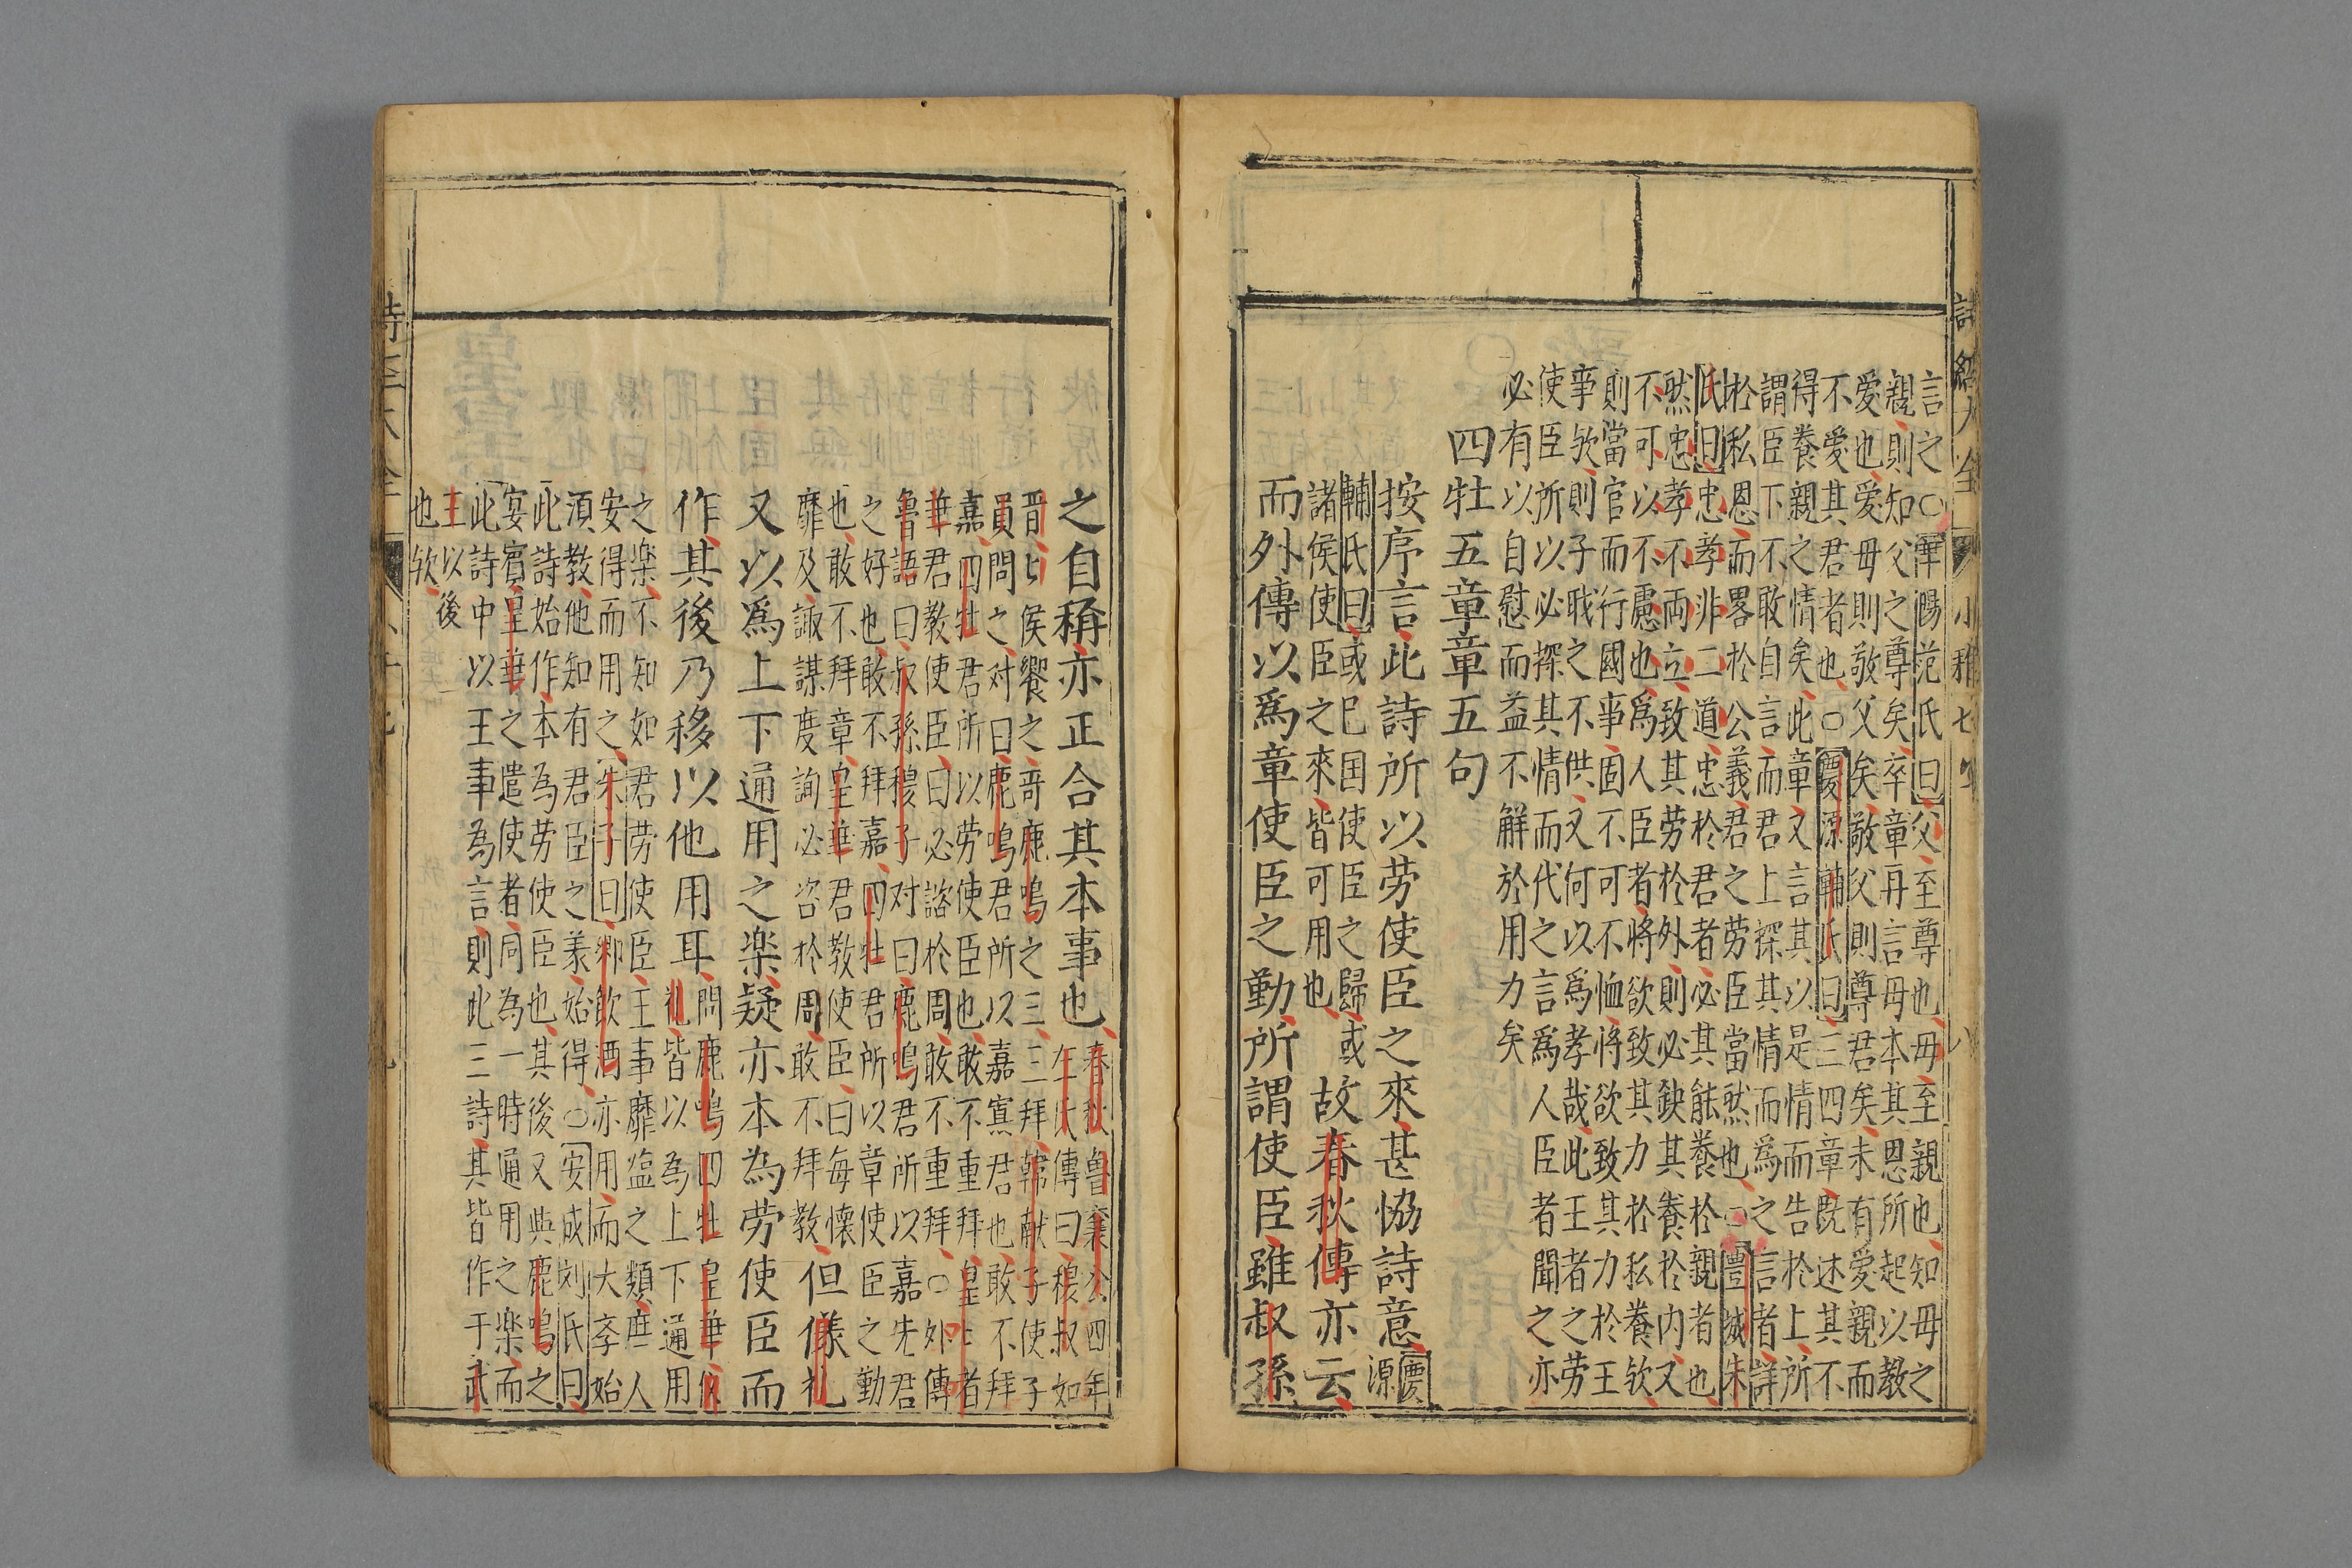 詩經大全　小雅七　八
言之○華陽范氏曰父至尊也母至親也知母之
親則知父之尊矣卒章再言母本其恩所起以教
愛也愛母則敬父矣敬父則尊君矣未有愛親而
不愛其君者也○慶源輔氏曰三四章既述其不
得養親之情矣此章又言其以是情而告於上所
謂臣下不敢自言而君上探其情而爲之言者詳
於私恩而畧於公義君之劳臣當然也○豐城朱
氏曰忠孝非二道忠於君者必其能養於親者也
然忠孝不两立致其劳於外則必缺其養於内又
不可以不慮也爲人臣者將欲致其力於私養欤
則當官而行國事固不可不恤将欲致其力於王
事欤則子戝之不供又何以爲孝哉此王者之劳
使臣所以必探其情而代之言爲人臣者聞之亦
必有以自慰而益不解於用力矣
四牡五章章五句
按序言此詩所以劳使臣之來甚協詩意慶源
輔氏曰或已国使臣之歸或
諸侯使臣之來皆可用也故春秋傳亦云
而外傳以爲章使臣之勤所謂使臣雖叔孫
之自稱亦正合其本事也春秋魯襄公四年
左氏傳曰穆叔如
晋〻侯饗之哥鹿鳴之三三拜韓献子使子
員問之对曰鹿鳴君所以嘉寡君也敢不拜
嘉四牡君所以劳使臣也敢不重拜皇〻者
華君教使臣曰必諮於周敢不重拜○外傳
魯語曰叔孫穆子对曰鹿鳴君所以嘉先君
之好也敢不拜嘉四牡君所以章使臣之勤
也敢不拜章皇華君教使臣曰每懷
靡及諏謀度詢必咨於周敢不拜教但儀礼
又以爲上下通用之楽疑亦本為劳使臣而
作其後乃移以他用耳問鹿鳴四牡皇華仪
礼皆以為上下通用
之楽不知如君劳使臣王事靡盬之類庶人
安得而用之朱子曰鄉飲酒亦用而大斈始
湏教他知有君臣之義始得○安成刘氏曰
此詩始作本為劳使臣也其後又與鹿鳴之
宴賓皇華之遣使者同為一時通用之楽而
此詩中以王事為言則此三詩其皆作于武
王以後
也欤